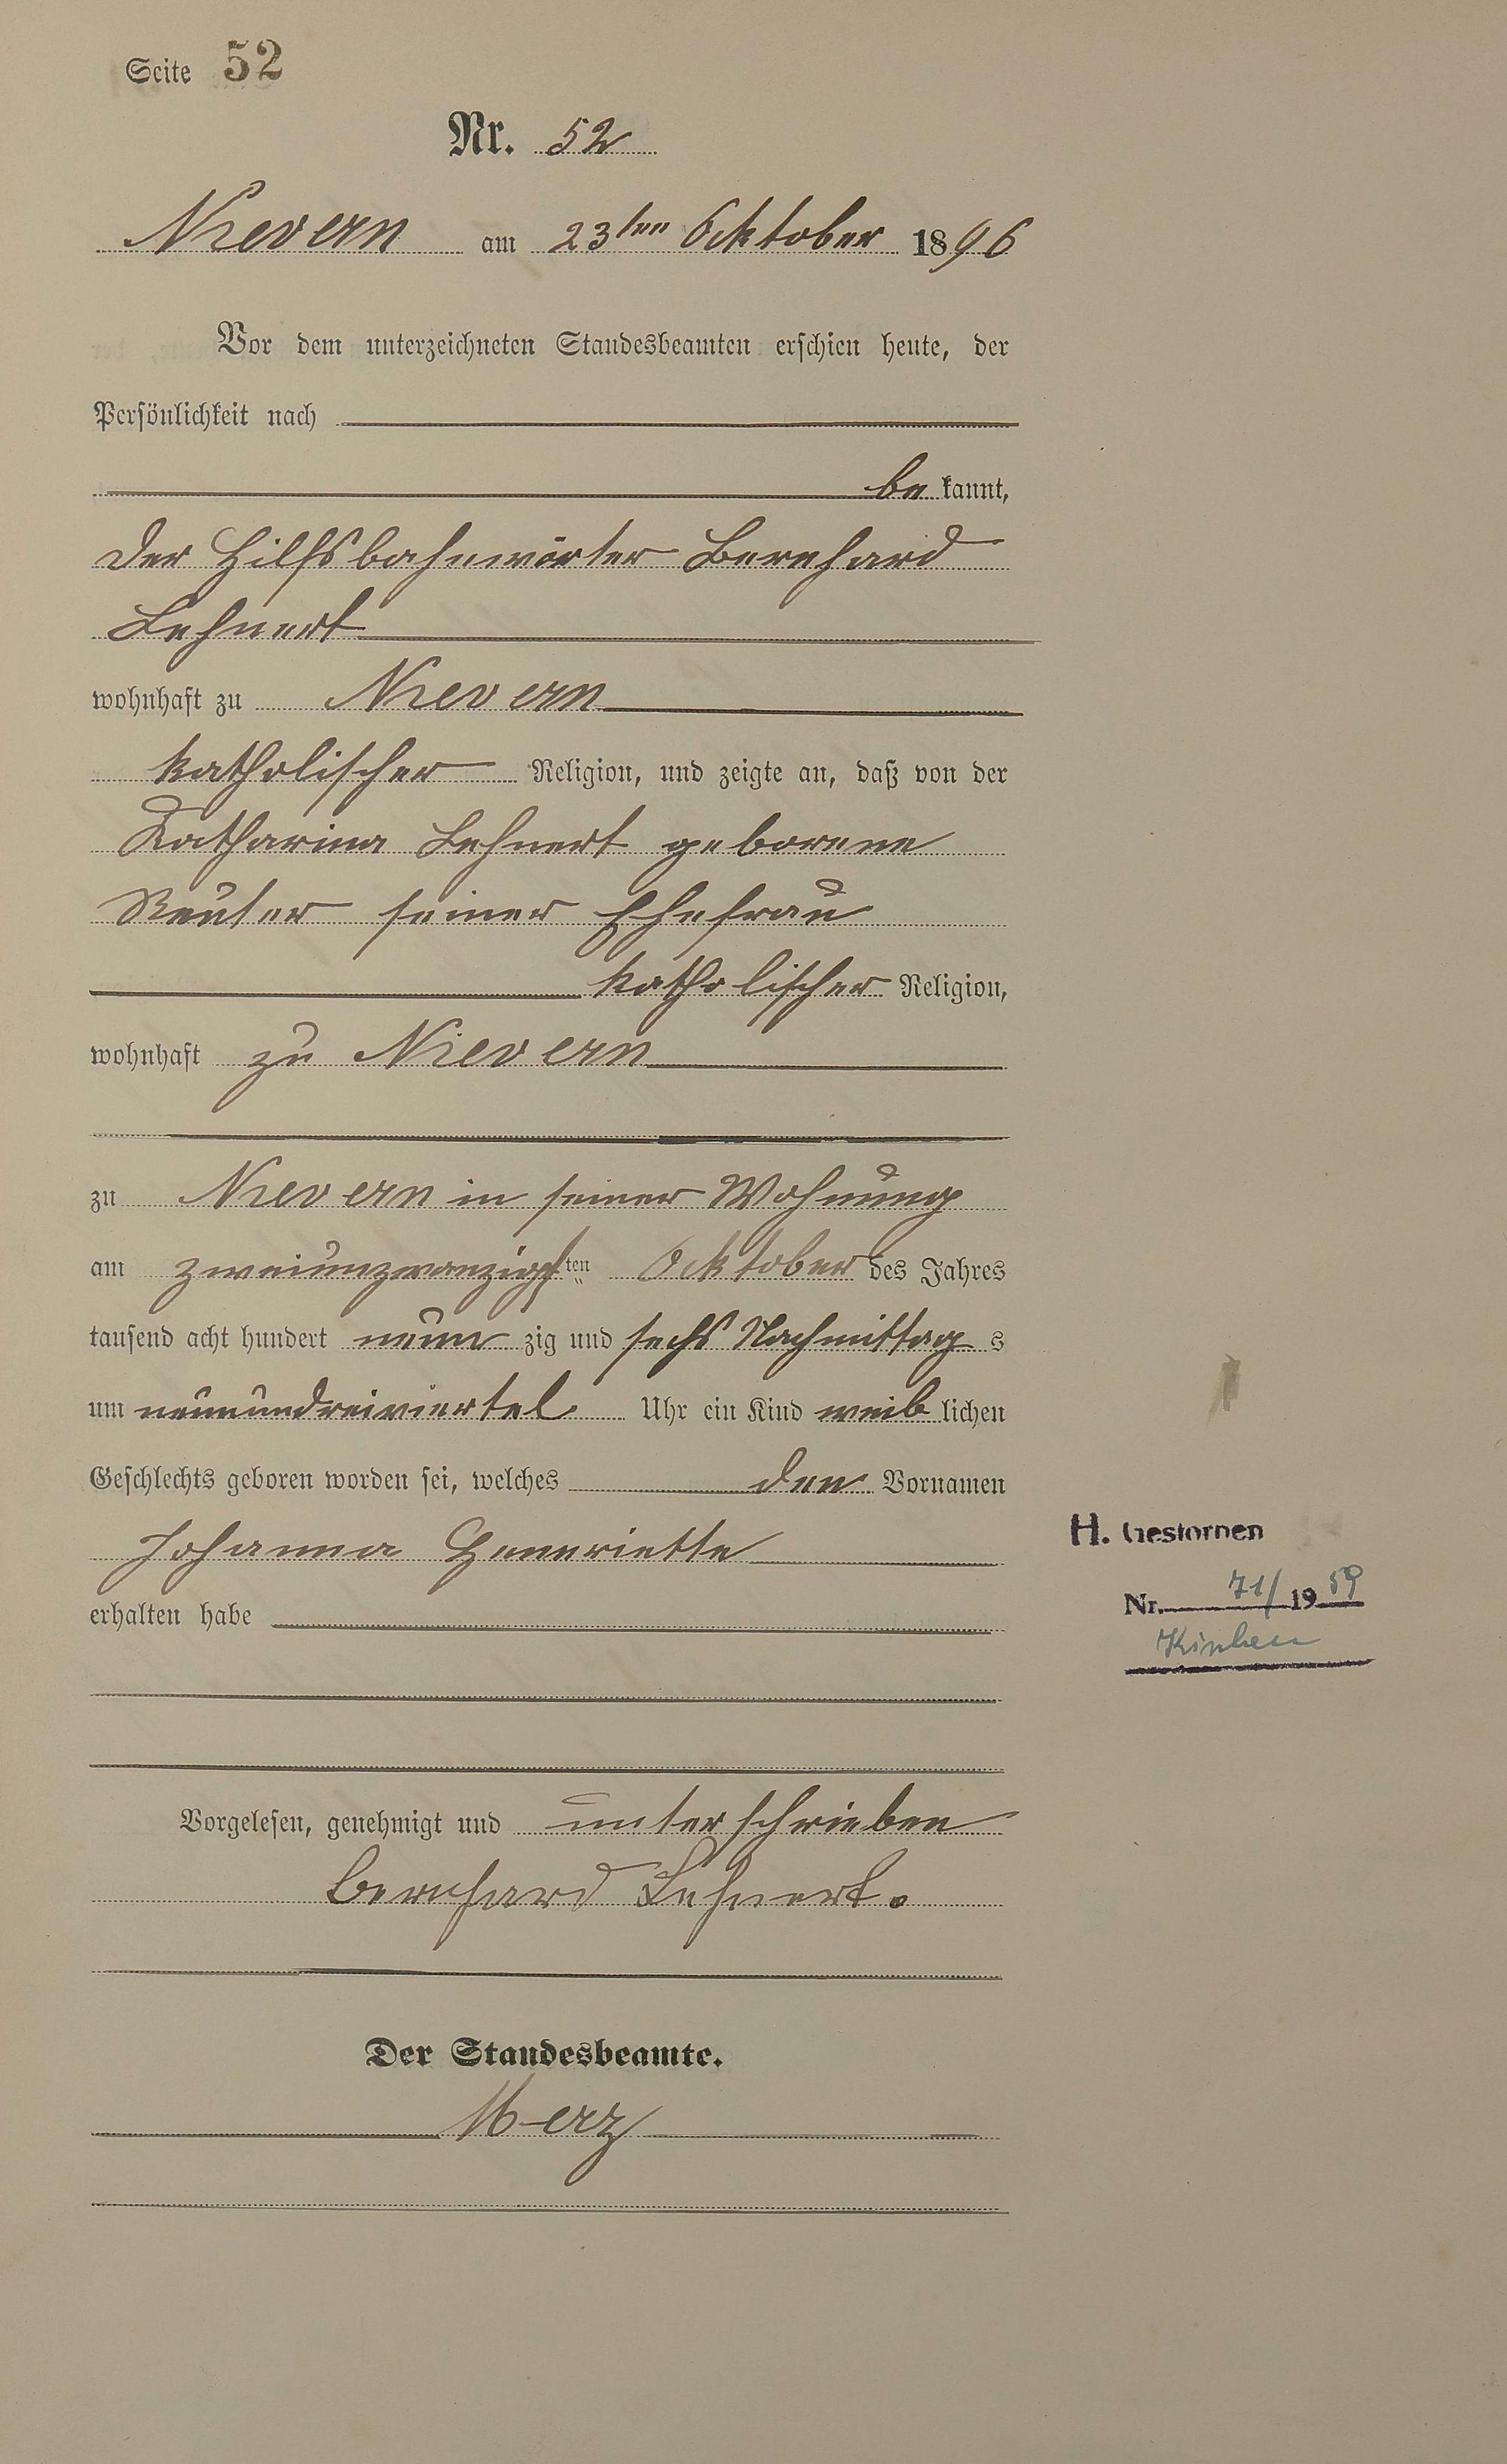 Seite 52
Nr. 52
Nievern am 23ten Oktober 1896
Vor dem unterzeichneten Standesbeamten erschien heute, der
Persönlichkeit nach
be kannt,
der Hilfsbahnwärter Bernhard
Lehnert
wohnhaft zu Nievern
katholischer Religion, und zeigte an, daß von der
Katharina Lehnert geborene
Reuter seiner Ehefrau
katholischer Religion,
wohnhaft zu Nievern
zu Nievern in seiner Wohnung
am zweiunzwanzigsten Oktober des Jahres
tausend acht hundert neun zig und sechs Nachmittag s
um neunundreiviertel Uhr ein Kind weib lichen
Geschlechts geboren worden sei, welches den Vornamen
Johanna Henriette
erhalten habe
H. Gestorben
Nr. 71/ 19 59
Vorgelesen, genehmigt und unterschrieben
Bernhard Lehnert.
Der Standesbeamte.
Merz